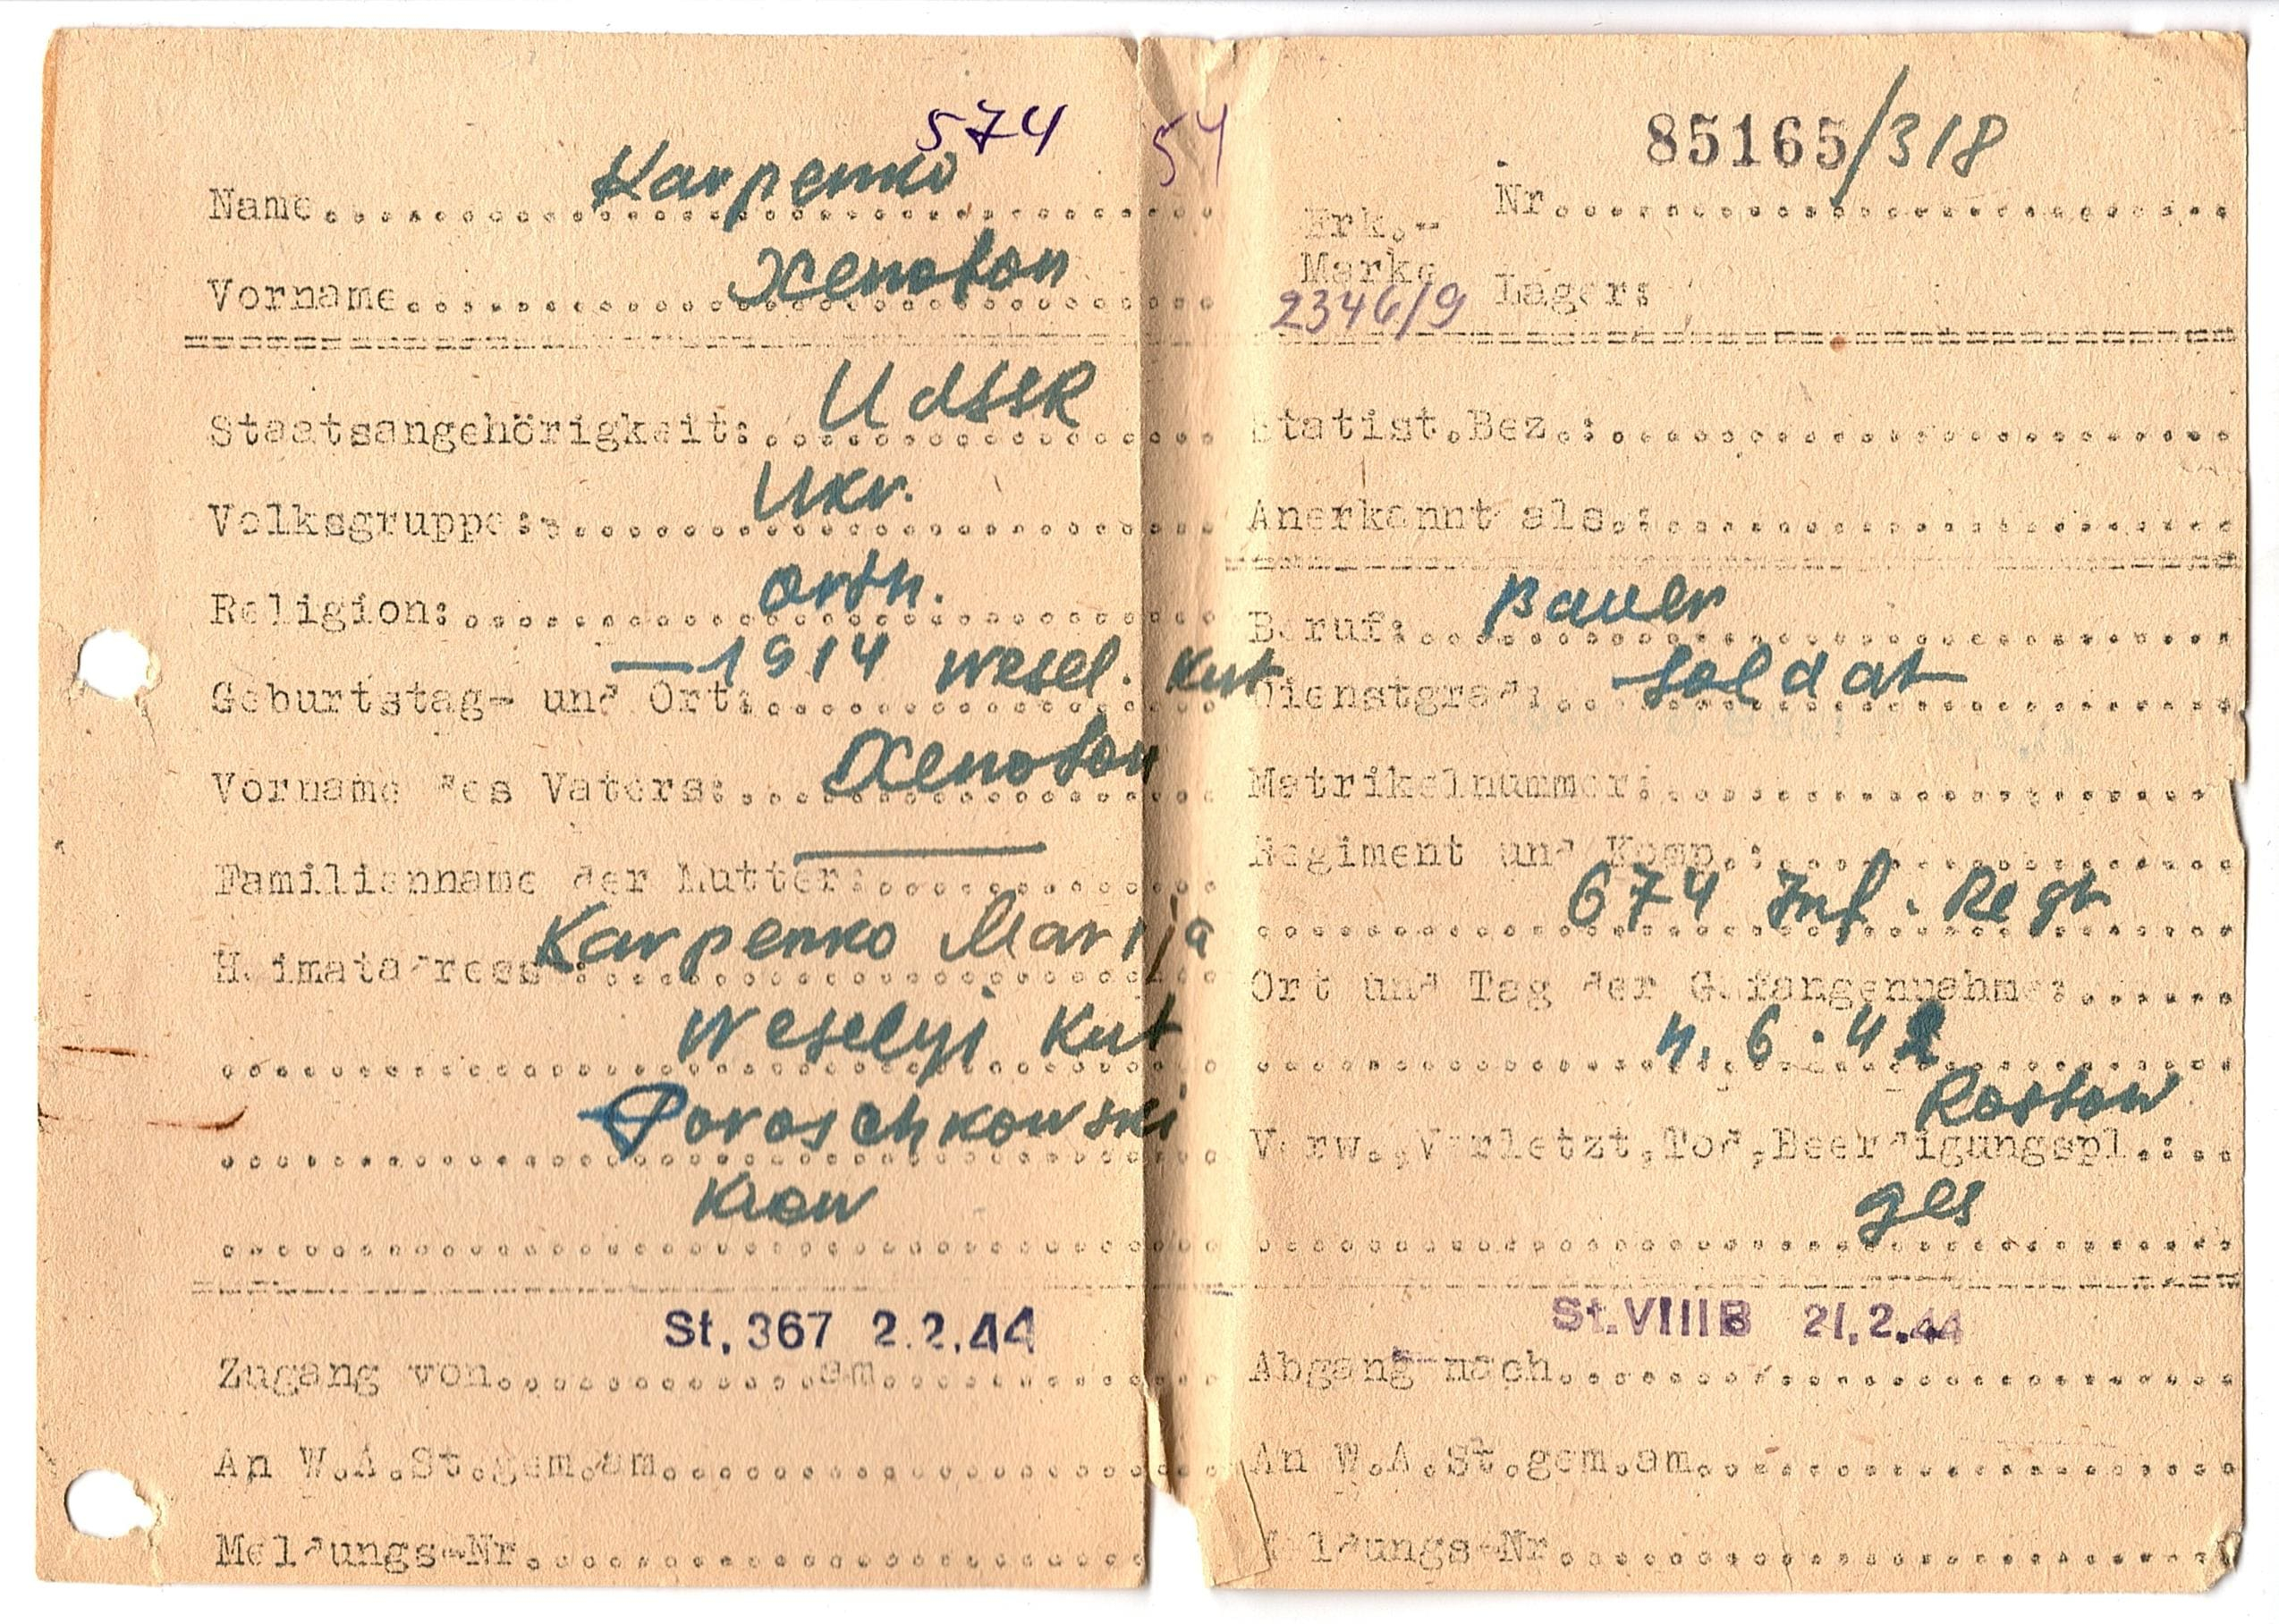 574
Name Karpenko
Vorname Xenofon
Staatsangehörigkeit: UdSSR
Volksgruppe: Ukr.
Religion: orth.
Geburtstag- und Ort: —1914 Wesel. Kut
Vorname des Vaters: Xenofon
Familienname der Mutter: —
Heimatadresse: Karpenko Marija
Weselyj Kut
Poroschkowski
Kiew
St. 367 2.2.44
Zugang von am
An W.A.St.gem.am
Meldungs-Nr.
54
85165/318
Nr.
Erk.-
Marke Lager:
2346/9
Statist.Bez.:
Anerkannt als.:
Beruf: Bauer
Dienstgrad: Soldat
Matrikelnummer:
Regiment und Komp.:
674 Inf. Regt
Ort und Tag der Gefangennahme:
6.42
Rostow
Verw.,Verletzt,Tod,Beerdigungspl.:
ges
St.VIIIB 21.2.44
Abgang nach
An W.A.St.gem.am
Meldungs-Nr.